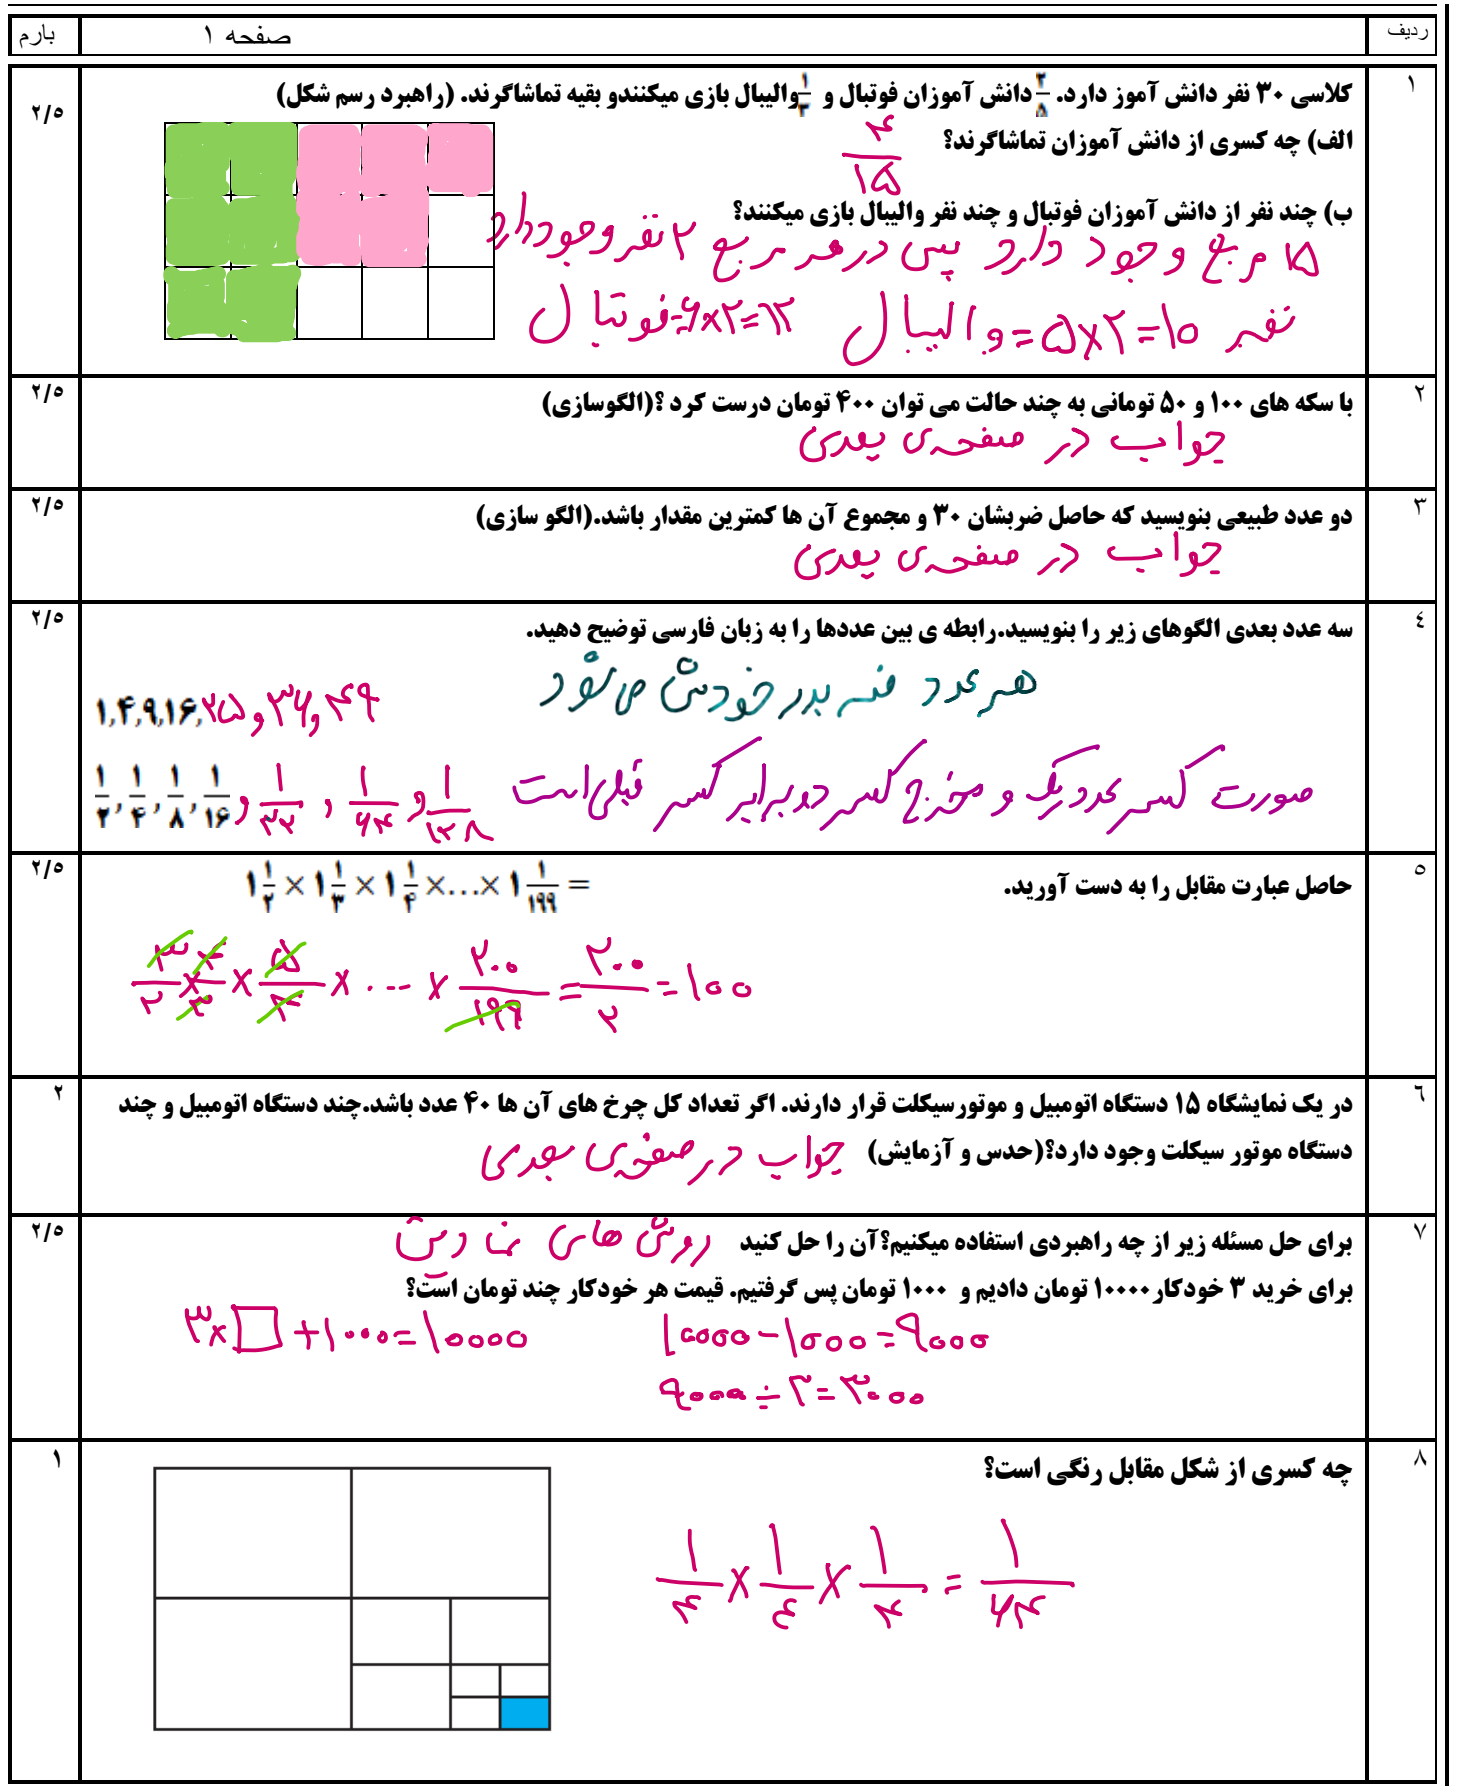 ردیف صفحه ۱ بارم
۱ کلاسی ۳۰ نفر دانش آموز دارد. ۲/۵ دانش آموزان فوتبال و ۱/۳ والیبال بازی میکنندو بقیه تماشاگرند. (راهبرد رسم شکل) ۲/۵
الف) چه کسری از دانش آموزان تماشاگرند؟ ۴/۱۵
ب) چند نفر از دانش آموزان فوتبال و چند نفر والیبال بازی میکنند؟
۱۵ مربع وجود دارد پس در هر مربع ۲ نفر وجود دارد
نفر ۱۰=۲×۵=والیبال ۱۲=۲×۶=فوتبال
۲ با سکه های ۱۰۰ و ۵۰ تومانی به چند حالت می توان ۴۰۰ تومان درست کرد ؟(الگوسازی) ۲/۵
جواب در صفحه‌ی بعدی
۳ دو عدد طبیعی بنویسید که حاصل ضربشان ۳۰ و مجموع آن ها کمترین مقدار باشد.(الگو سازی) ۲/۵
جواب در صفحه‌ی بعدی
٤ سه عدد بعدی الگوهای زیر را بنویسید.رابطه ی بین عددها را به زبان فارسی توضیح دهید. ۲/۵
هر عدد ضرب در خودش می شود
۱,۴,۹,۱۶,۲۵و۳۶و۴۹
صورت کسر عدد یک و مخرج کسر دو برابر کسر قبلی است
۱/۲ , ۱/۴ , ۱/۸ , ۱/۱۶ و ۱/۳۲ , ۱/۶۴ و ۱/۱۲۸
٥ حاصل عبارت مقابل را به دست آورید. ۲/۵
۱ ۱/۲ × ۱ ۱/۳ × ۱ ۱/۴ ×...× ۱ ۱/۱۹۹ =
۳/۲ × ۴/۳ × ۵/۴ × ... × ۲۰۰/۱۹۹ = ۲۰۰/۲ = ۱۰۰
٦ در یک نمایشگاه ۱۵ دستگاه اتومبیل و موتورسیکلت قرار دارند. اگر تعداد کل چرخ های آن ها ۴۰ عدد باشد.چند دستگاه اتومبیل و چند ۲
دستگاه موتور سیکلت وجود دارد؟(حدس و آزمایش) جواب در صفحه‌ی بعدی
۷ برای حل مسئله زیر از چه راهبردی استفاده میکنیم؟آن را حل کنید روش های نمادین ۲/۵
برای خرید ۳ خودکار۱۰۰۰۰ تومان دادیم و ۱۰۰۰ تومان پس گرفتیم. قیمت هر خودکار چند تومان است؟
۳×□+۱۰۰۰=۱۰۰۰۰ ۱۰۰۰۰-۱۰۰۰=۹۰۰۰
۹۰۰۰÷۳=۳۰۰۰
۸ چه کسری از شکل مقابل رنگی است؟ ۱
۱/۴ × ۱/۴ × ۱/۴ = ۱/۶۴